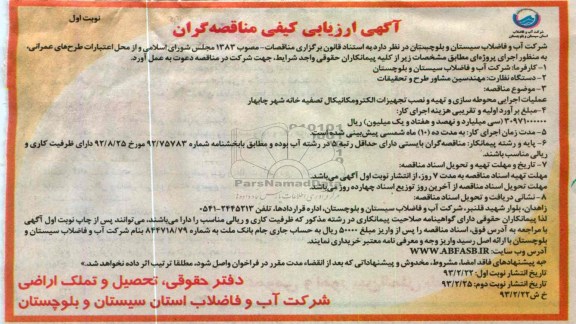 نوبت اول
آگهی ارزیابی کیفی مناقصه‌گران
شرکت آب و فاضلاب
استان سیستان و بلوچستان
شرکت آب و فاضلاب سیستان و بلوچستان در نظر دارد به استناد قانون برگزاری مناقصات- مصوب ۱۳۸۳ مجلس شورای اسلامی و از محل اعتبارات طرح‌های عمرانی،
به منظور اجرای پروژه‌ای مطابق مشخصات زیر از کلیه پیمانکاران حقوقی واجد شرایط، جهت شرکت در مناقصه دعوت به عمل آورد.
۱- کارفرما: شرکت آب و فاضلاب سیستان و بلوچستان
۲- دستگاه نظارت: مهندسین مشاور طرح و تحقیقات
۳- موضوع مناقصه:
عملیات اجرایی محوطه سازی و تهیه و نصب تجهیزات الکترومکانیکال تصفیه خانه شهر چابهار
۴- مبلغ برآورد اولیه و تقریبی هزینه اجرای کار:
۳۰۹۷۱۰۰۰۰۰۰ (سی میلیارد و نهصد و هفتاد و یک میلیون) ریال
۵- مدت زمان اجرای کار: به مدت ده (۱۰) ماه شمسی پیش‌بینی شده است
۶- پایه و رشته پیمانکار: مناقصه‌گران بایستی دارای حداقل رتبه ۵ در رشته آب بوده و مطابق بابخشنامه شماره ۹۲/۷۵۷۸۳ مورخ ۹۲/۸/۲۵ دارای ظرفیت کاری و
ریالی مناسب باشند.
۷- تاریخ و مهلت تهیه و تحویل اسناد مناقصه:
مهلت تهیه اسناد مناقصه به مدت ۷ روز، از انتشار نوبت اول آگهی می‌باشد.
مهلت تحویل اسناد مناقصه از آخرین روز توزیع اسناد چهارده روز می‌باشد
۸- نشانی دریافت و تحویل اسناد مناقصه:
زاهدان، بلوار شهید قلنبر، شرکت آب و فاضلاب سیستان و بلوچستان، اداره قراردادها، تلفن ۲۴۴۵۲۱۳-۰۵۴۱
لذا پیمانکاران حقوقی دارای گواهینامه صلاحیت پیمانکاری در رشته مذکور که ظرفیت کاری و ریالی مناسب را دارا می‌باشند، می‌توانند پس از چاپ نوبت اول آگهی
با مراجعه به آدرس فوق، اسناد مناقصه را پس از واریز مبلغ ۵۰۰۰۰۰ ریال به حساب جاری جام بانک ملت به شماره ۸۲۴۷۱۸/۷۹ بنام شرکت آب و فاضلاب سیستان و
بلوچستان با ارائه اصل رسید واریز وجه و معرفی نامه معتبر خریداری نمایند.
آدرس وب سایت: WWW.ABFASB.IR
«به پیشنهادهای فاقد امضا، مشروط، مخدوش و پیشنهاداتی که بعد از انقضاء مدت مقرر در فراخوان واصل شود، مطلقا ترتیب اثر داده نخواهد شد.»
تاریخ انتشار نوبت اول: ۹۳/۲/۲۲
تاریخ انتشار نوبت دوم: ۹۳/۲/۲۵
خ ش ۹۳/۲/۲۲
دفتر حقوقی، تحصیل و تملک اراضی
شرکت آب و فاضلاب استان سیستان و بلوچستان
ParsNamadData